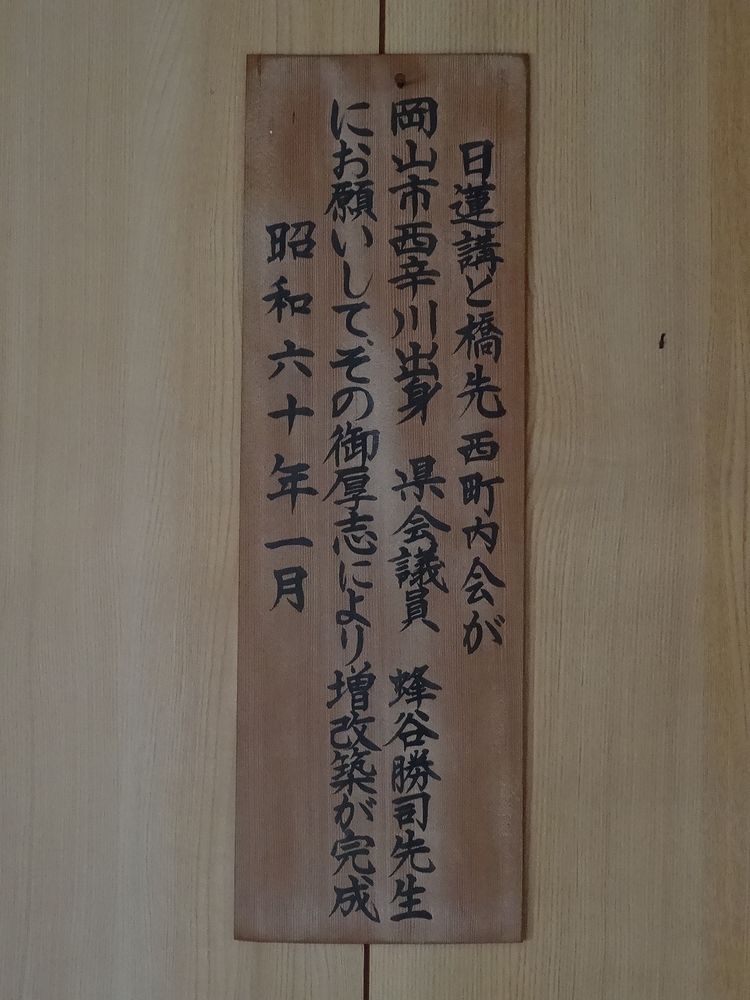 日蓮講と橋先西町内会が
岡山市西辛川出身　県会議員　蜂谷勝司先生
にお願いして、その御厚志により増改築が完成
昭和六十年一月